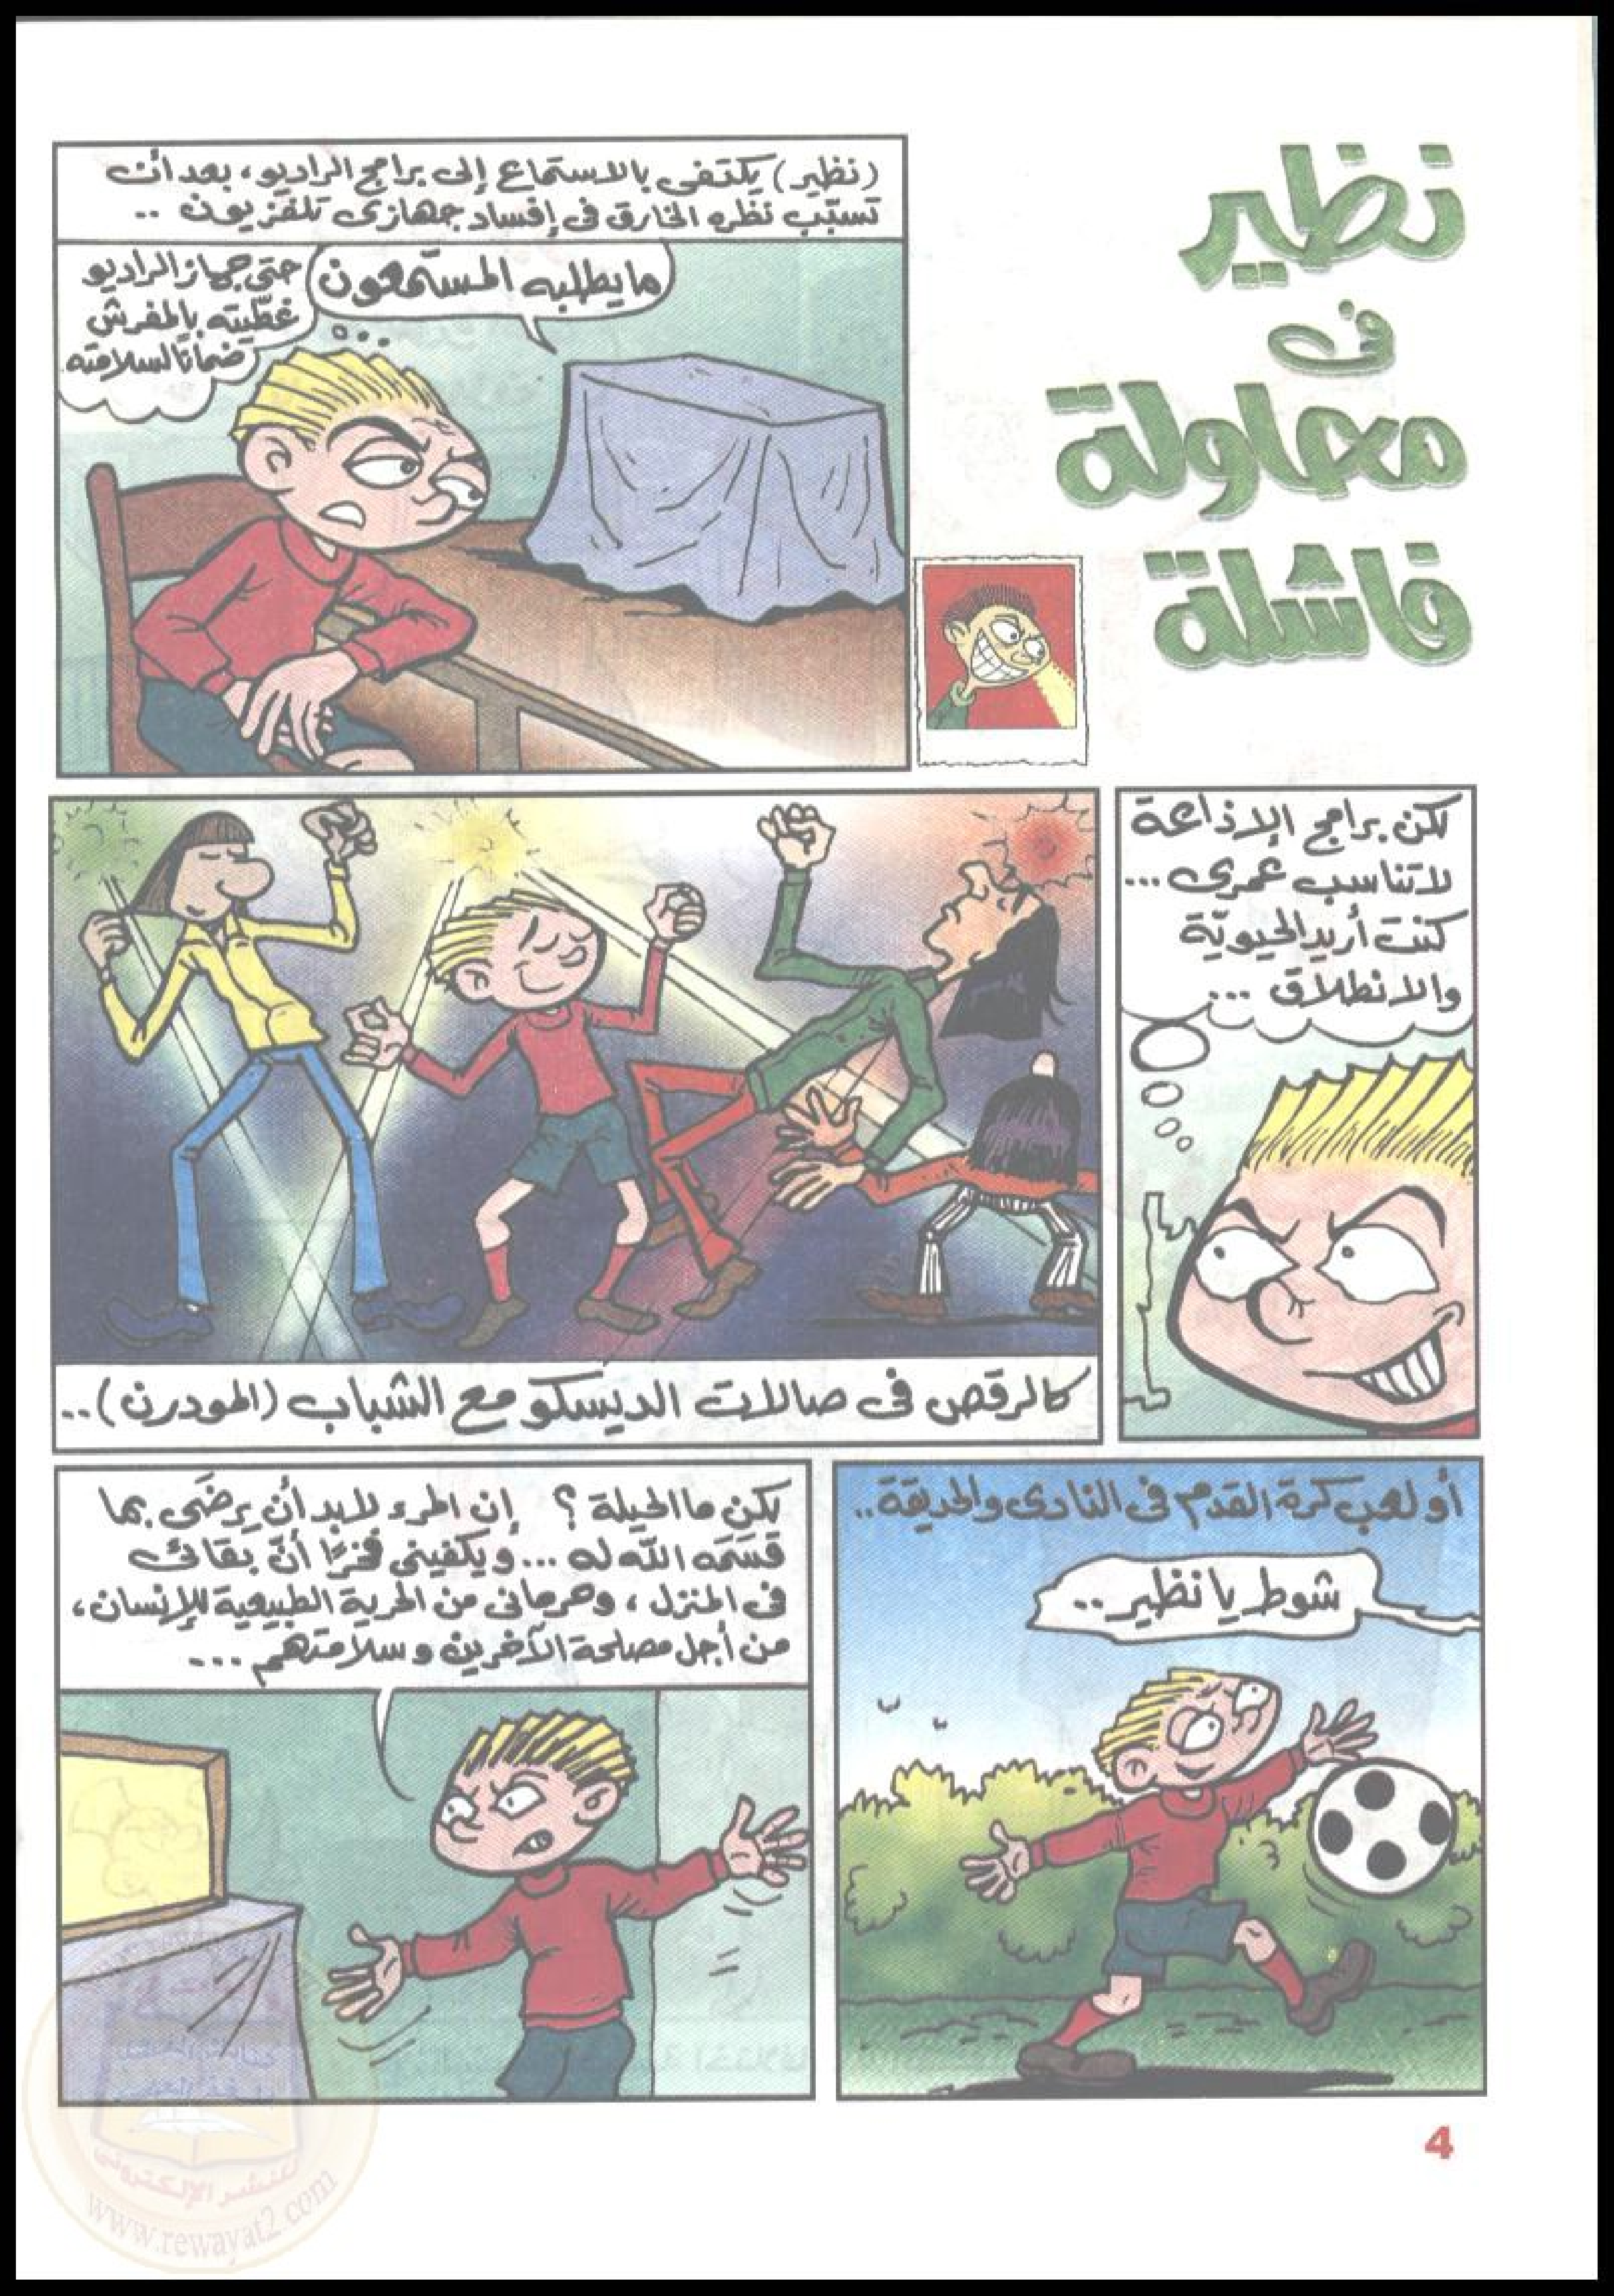 نظير
فى
محاولة
فاشلة
(نظير) يكتفى بالاستماع إلى برامج الراديو، بعد أن
تسبّب نظره الخارق فى إفساد جهازى تلفزيون ..
ما يطلبه المستمعون
حتى جهاز الراديو
غطّيته بالمفرش
ضمانًا لسلامته
لكن برامج الإذاعة
لا تناسب عمرى ...
كنت أريد الحيويّة
والانطلاق ...
كالرقص فى صالات الديسكو مع الشباب (المودرن) ..
أو لعب كرة القدم فى النادى والحديقة ..
شوط يا نظير ..
لكن ما الحيلة ؟ إن المرء لابد أن يرضَى بما
قسَمَه الله له ... ويكفينى فخرًا أنّ بقائى
فى المنزل ، وحرمانى من الحرية الطبيعية للإنسان ،
من أجل مصلحة الآخرين وسلامتهم ...
4
للنشر الإلكترونى
www.rewayat2.com